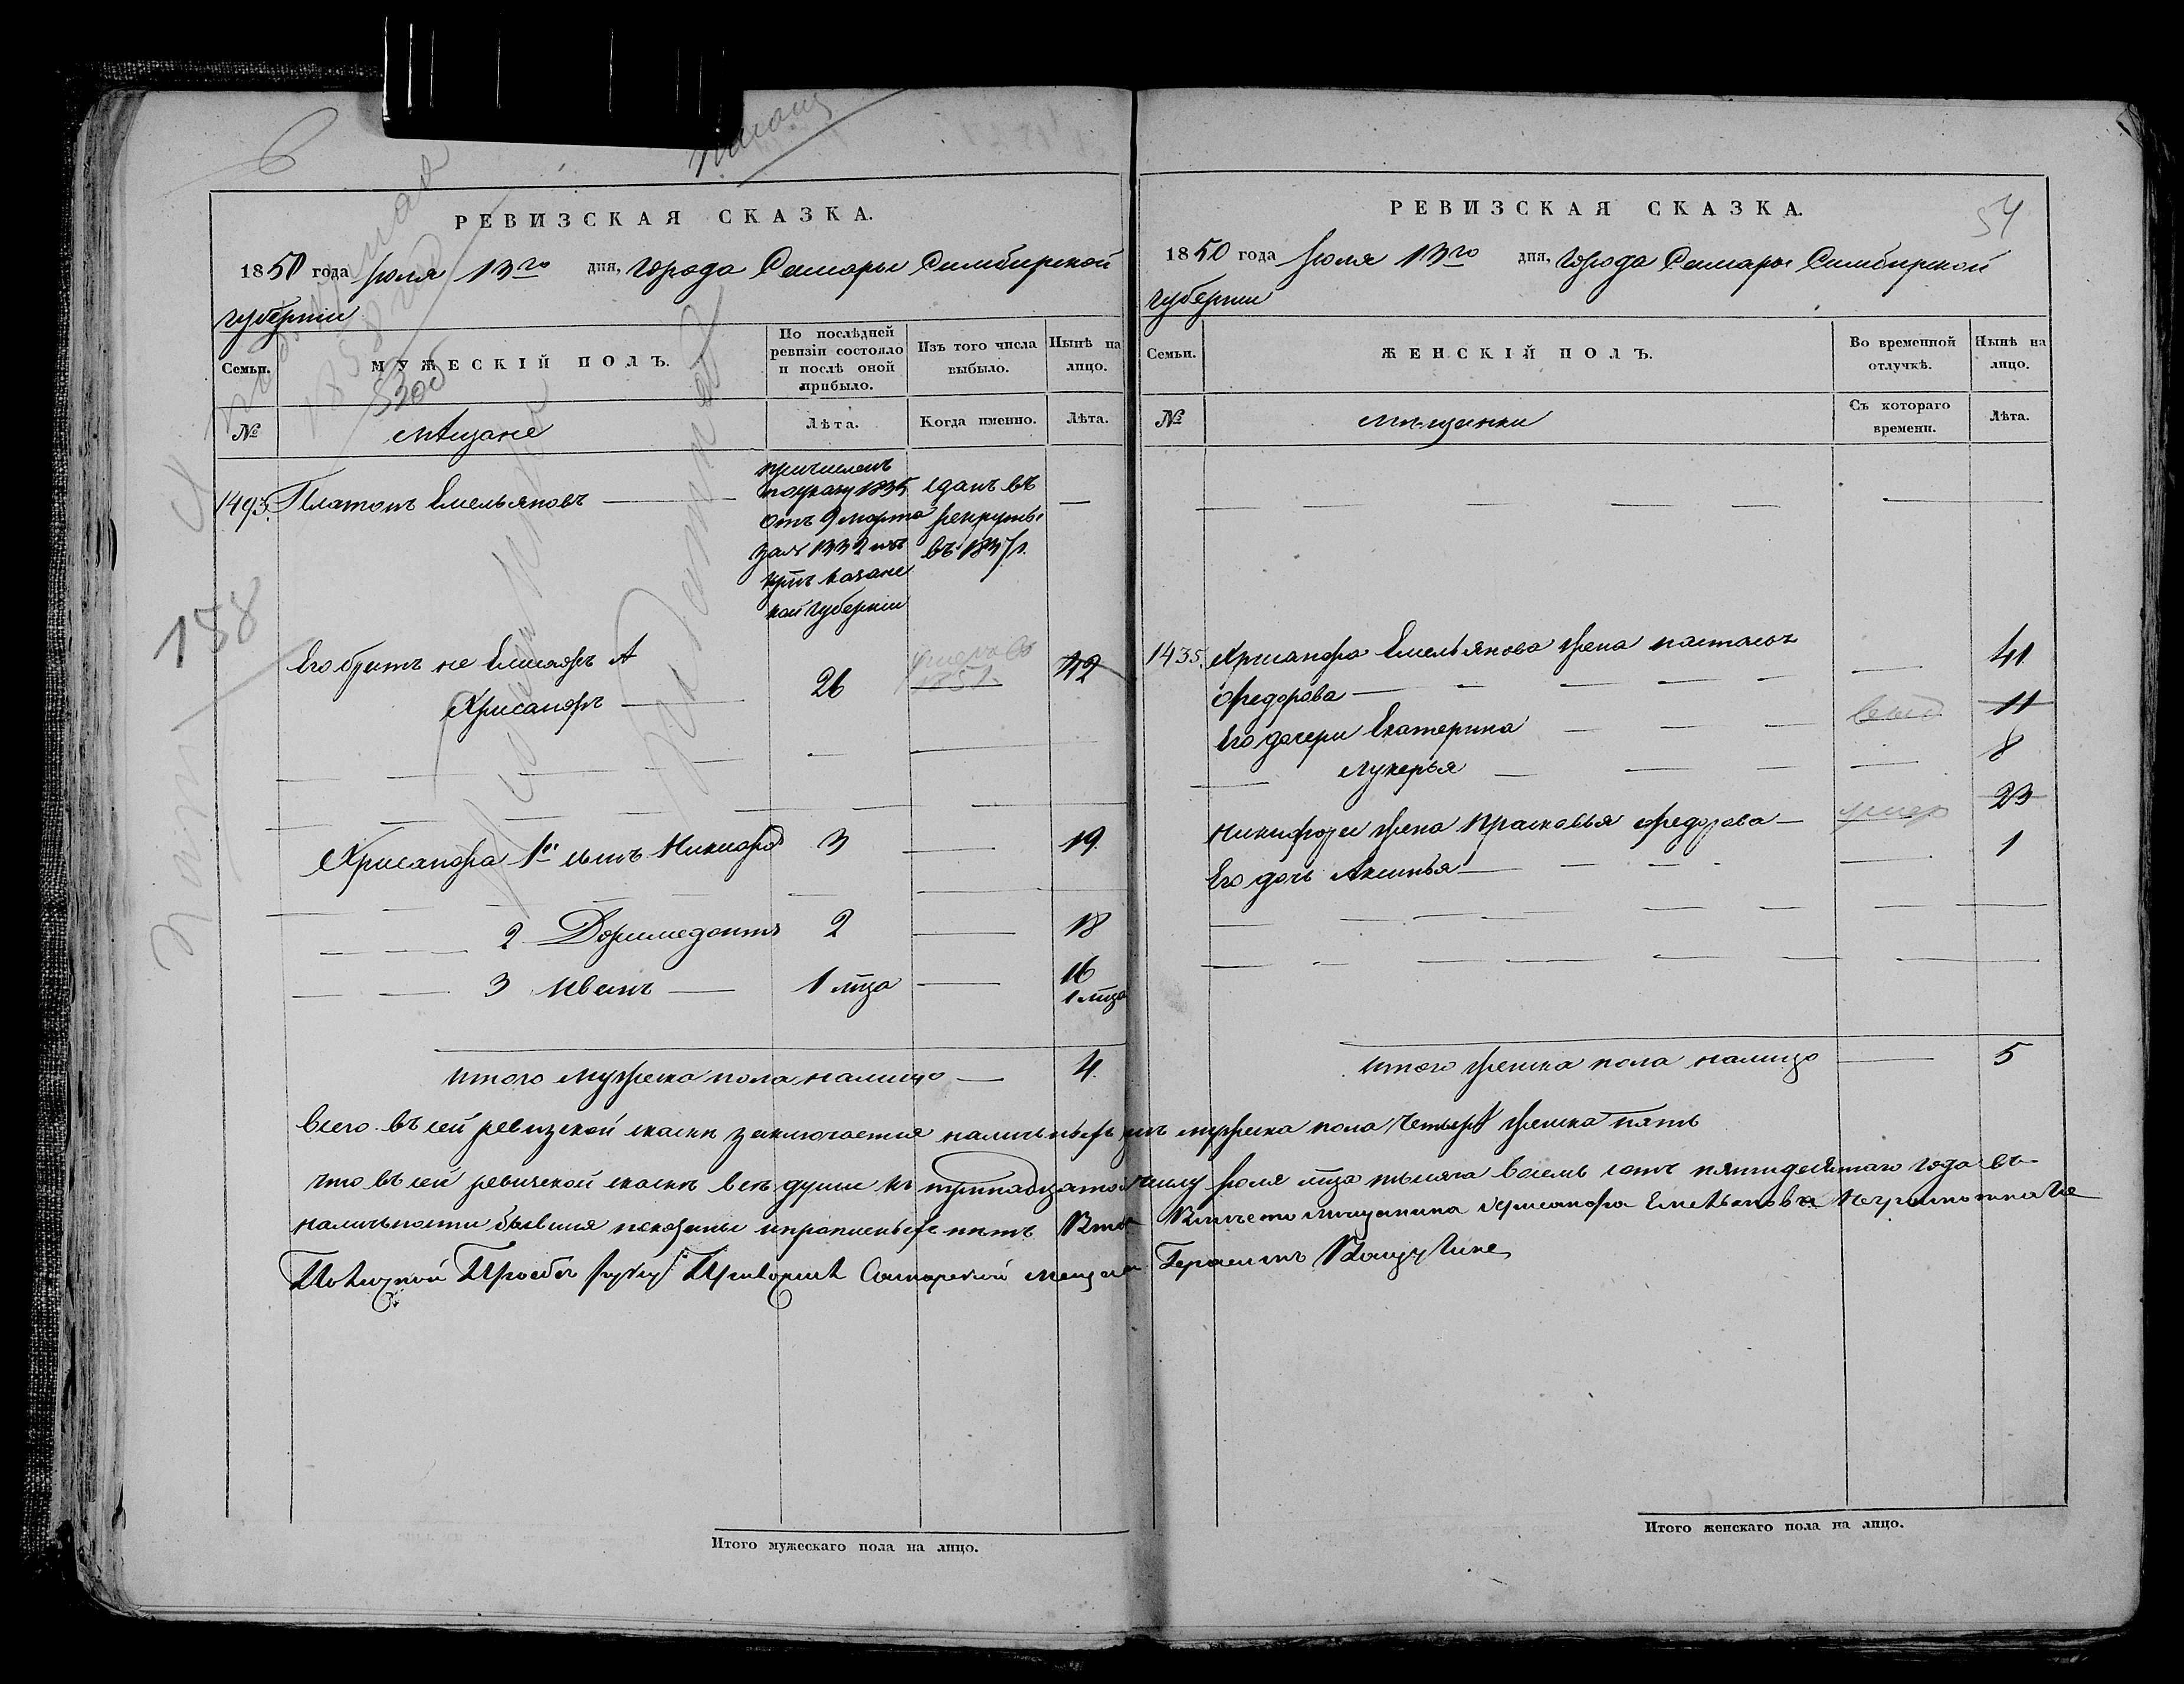 РЕВИЗСКАЯ СКАЗКА.
1850 года Іюля 13го дня, города Самары Симбирской
губерніи
Семьи.
МУЖЕСКІЙ ПОЛЪ.
По послѣдней
ревизіи состояло
и послѣ оной
прибыло.
Изъ того числа
выбыло.
Нынѣ на
лицо.
№
мѣщане
Лѣта.
Когда именно.
Лѣта.
1493. Платонъ Емельяновъ
причисленъ
по указу 1835
отъ 9 марта
за № 1332 изъ
казанс
кой губерніи
сданъ въ
рекруты
въ 1837 г.
Его братъ не Елисафъ А
Хрисанфъ 26 42
Хрисанфа 1й сынъ Никифоръ 3 19
2 Доримедонтъ 2 18
3 Иванъ 1 мца 16
1 мца
итого мужеска пола налицо 4.
158
РЕВИЗСКАЯ СКАЗКА.
54
1850 года Іюля 13го дня, города Самары Симбирской
губерніи
Семьи.
ЖЕНСКІЙ ПОЛЪ.
Во временной
отлучкѣ.
Нынѣ на
лицо.
№
мѣщанки
Съ котораго
времени.
Лѣта.
1435. Хрисанфа Емельянова жена настасья 41
Федорова
Его дочери Екатерина 11
Лукерья 8
Никифора жена Прасковья Федорова 23
Его дочь Аксинья 1
итого женска пола налицо 5
Всего въ сей ревизской сказкѣ заключается наличныхъ душъ мужеска пола четыре женска пять
что въ сей ревизской сказкѣ всѣ души къ тринадцатому числу Іюля мца тысяча восемь сотъ пятидесятаго года въ
наличности бывшия показаны и прописныхъ нетъ Вто Вместо мещанина Хрисанфа Емельянова неграмотнаго
По личной Просбе руку Приложилъ Самарской мещанин Герасимъ
Итого мужескаго пола на лицо.
Итого женскаго пола на лицо.